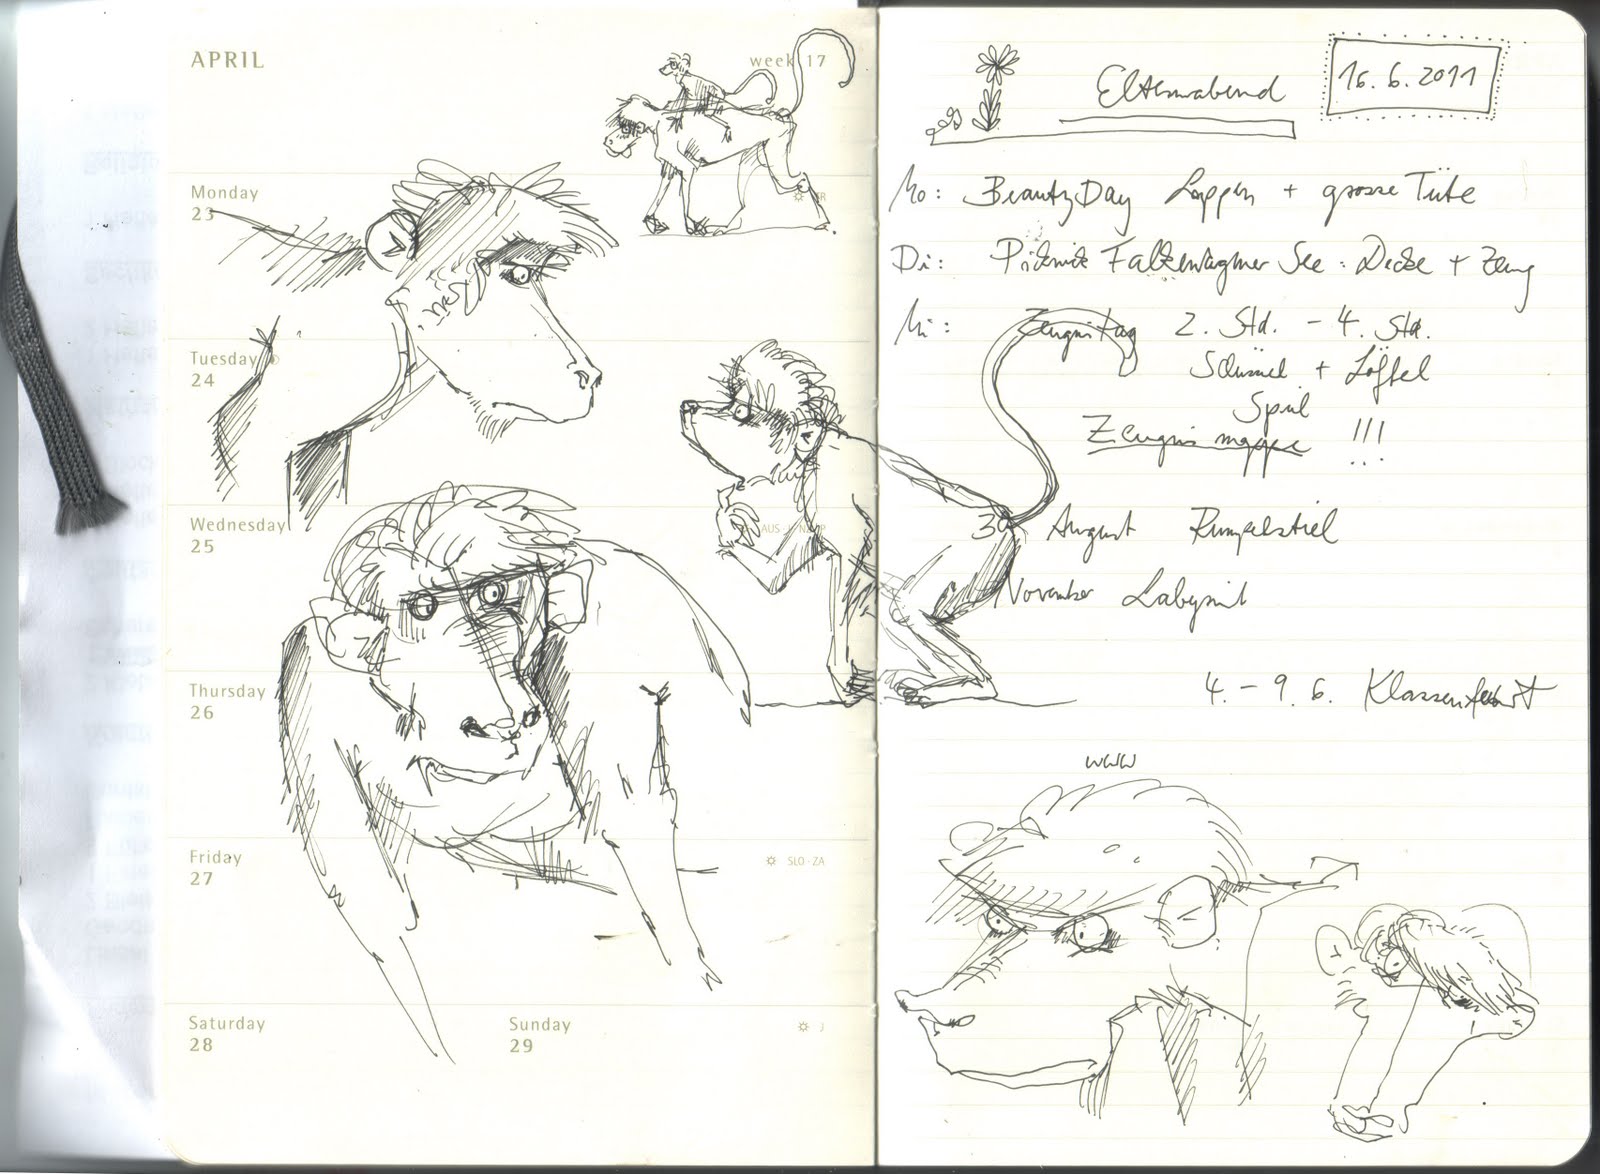 APRIL
week 17
Monday
23
Tuesday
24
Wednesday
25
AUS - NZ - P
Thursday
26
Friday
27
SLO - ZA
Saturday
28
Sunday
29
J
Elternabend
16.6.2011
Mo: BeautyDay Lappen + grosse Tüte
Di: Picknick Falkenhagener See: Decke + Zeug
Mi: Zeugnistag 2. Std. - 4. Std.
Schüssel + Löffel
Spiel
Zeugnismappe !!!
30 August Rumpelstiel
November Labyrinth
4. - 9. 6. Klassenfahrt
www